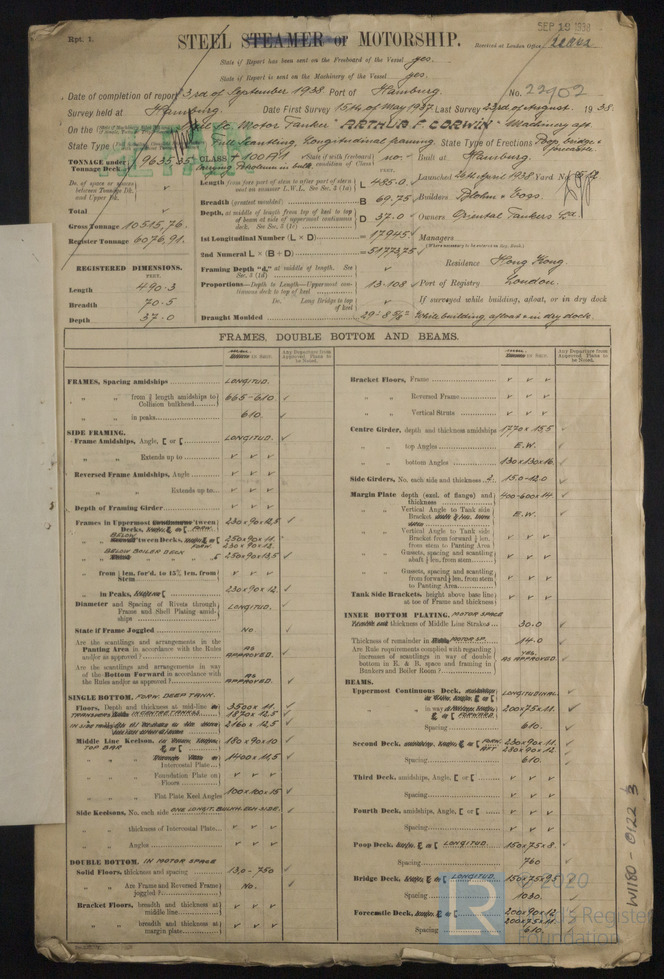 Rpt. 1.
SEP 19 1938
STEEL STEAMER or MOTORSHIP.
Received at London Office
State if Report has been sent on the Freeboard of the Vessel yes.
State if Report is sent on the Machinery of the Vessel yes.
Date of completion of report 3rd of September 1938 Port of Hamburg No. 22902
Survey held at Hamburg. Date First Survey 15th of May 1937. Last Survey 23rd of August. 1938.
On the Motor Tanker "ARTHUR F. CORWIN" Machinery aft
State Type Full Scantling, Longitudinal framing State Type of Erections Poop, bridge & forecastle
TONNAGE under Tonnage Deck 9635,35 CLASS + 100A1 State if with freeboard condition of Class no. Built at Hamburg.
carrying Petroleum in bulk
Do. of space or spaces between Tonnage Dk. and Upper Dk. ✓
Total ✓
Gross Tonnage 10515,76.
Register Tonnage 6076,91.
REGISTERED DIMENSIONS.
FEET.
Length 490.3
Breadth 70.5
Depth 37.0
Length L 485.0
Breadth (greatest moulded) B 69.75
Depth, at middle of length from top of keel to top of beam at side of uppermost continuous deck. See Sec. 3 (1d) D 37.0
1st Longitudinal Number (L × D) = 17945
2nd Numeral L × (B + D) = 51773,75
Framing Depth "d," at middle of length. See Sec. 3 (1d) ✓
Proportions—Depth to Length—Uppermost continuous deck to top of keel 13.108
Do. Long Bridge to top of keel ✓
Draught Moulded 29'-8 5/8"
Launched 20th April 1938 Yard No.
Builders Blohm & Voss.
Owners Oriental Tankers Ltd.
Managers
Residence Hong Kong.
Port of Registry London.
If surveyed while building, afloat, or in dry dock
While building, afloat & in dry dock.
FRAMES, DOUBLE BOTTOM AND BEAMS.
Any Departure from Approved Plans to be Noted.
Any Departure from Approved Plans to be Noted.
FRAMES, Spacing amidships LONGITUD.
" " from ⅗ length amidships to Collision bulkhead 665-610 ✓
" " in peaks 610. ✓
SIDE FRAMING.
Frame Amidships, Angle, [ or [ LONGITUD. ✓
" " Extends up to ✓ ✓ ✓
Reversed Frame Amidships, Angle ✓ ✓ ✓
" " Extends up to ✓ ✓ ✓
Depth of Framing Girder ✓ ✓ ✓
Frames in Uppermost Continuous 'tween Decks, Angle, [ or [ FORW. 230x90x12,5 ✓
BELOW
BELOW BOILER DECK 250x90x13,5
in Peaks, Angle or [ 230x90x12. ✓
Diameter and Spacing of Rivets through Frame and Shell Plating amidships LONGITUD. ✓
State if Frame Joggled NO. ✓
Are the scantlings and arrangements in the Panting Area in accordance with the Rules and/or as approved? AS APPROVED. ✓
Are the scantlings and arrangements in way of the Bottom Forward in accordance with the Rules and/or as approved? AS APPROVED. ✓
SINGLE BOTTOM. FORW. DEEP TANK.
Floors, Depth and thickness at mid-line 3500 x 11. ✓
TRANSVERSES IN CENTRE TANKS 1870 x 12,5 ✓
2160 x 12,5 ✓
Middle Line Keelson, 180x90x10 ✓
TOP BAR
Intercostal Plate 1400x11,5 ✓
" " Foundation Plate on Floors ✓ ✓ ✓
" " Flat Plate Keel Angles 100x100x15 ✓
Side Keelsons, No. each side ONE LONGIT. BULKH. EACH SIDE.
" " thickness of Intercostal Plate ✓ ✓ ✓
" " Angles ✓ ✓ ✓
DOUBLE BOTTOM. IN MOTOR SPACE
Solid Floors, thickness and spacing 13,0 - 750 ✓
" " Are Frame and Reversed Frame joggled? NO. ✓
Bracket Floors, breadth and thickness at middle line ✓ ✓ ✓
" " breadth and thickness at margin plate ✓ ✓ ✓
Bracket Floors, Frame ✓ ✓ ✓
" " Reversed Frame ✓ ✓ ✓
" " Vertical Struts ✓ ✓ ✓
Centre Girder, depth and thickness amidships 1770 x 15,5 ✓
" " top Angles E.W. ✓
" " bottom Angles 130x130x16 ✓
Side Girders, No. each side and thickness 4. 15.0-12.0 ✓
Margin Plate depth (excl. of flange) and thickness 400-600x14 ✓
" " Vertical Angle to Tank side Bracket E.W. ✓
" " Vertical Angle to Tank side Bracket from forward ⅕ len. from stem to Panting Area ✓ ✓ ✓
" " Gussets, spacing and scantling abaft ⅕ len. from stem ✓ ✓ ✓
" " Gussets, spacing and scantling from forward ⅕ len. from stem to Panting Area ✓ ✓ ✓
Tank Side Brackets, height above base line at toe of Frame and thickness ✓ ✓ ✓
INNER BOTTOM PLATING. MOTOR SPACE
thickness of Middle Line Strake 30.0 ✓
Thickness of remainder in MOTOR SP. 14.0 ✓
Are Rule requirements complied with regarding increases of scantlings in way of double bottom in E. & B. space and framing in Bunkers and Boiler Room? YES. AS APPROVED. ✓
BEAMS.
Uppermost Continuous Deck, LONGITUDINAL ✓
in way FORWARD. 200x75x11. ✓
Spacing 610. ✓
Second Deck, amidships, Angle, [ or [ FORW. 230x90x11.
AFT 230x90x12. ✓
Spacing 610. ✓
Third Deck, amidships, Angle, [ or [ ✓ ✓ ✓
Spacing ✓ ✓ ✓
Fourth Deck, amidships, Angle, [ or [ ✓ ✓ ✓
Spacing ✓ ✓ ✓
Poop Deck, Angle, [ or [ LONGITUD. 150x75x8. ✓
Spacing 760 ✓
Bridge Deck, Angle, [ or [ LONGITUD. 150x75x9,5
Spacing 1030. ✓
Forecastle Deck, Angle, [ or [ 200x90x12
200x75x11.
Spacing 610.
© 2020
Lloyd's Register
Foundation
W1180-0122 3